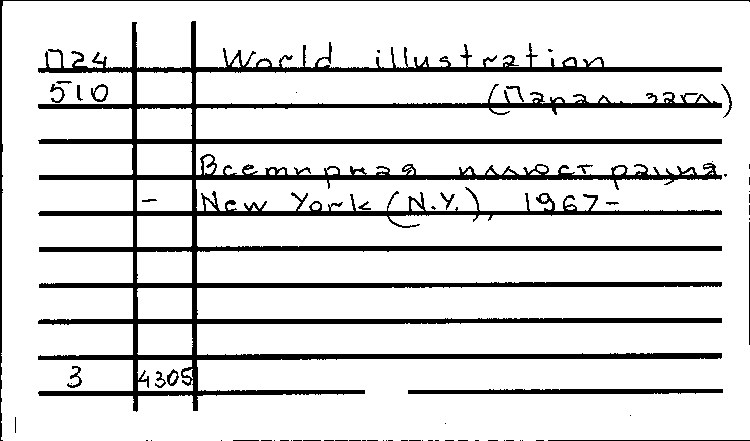 П24 World illustration
510 (Парал. загл.)
Всемирная иллюстрация.
- New York (N.Y.), 1967-
3 4305